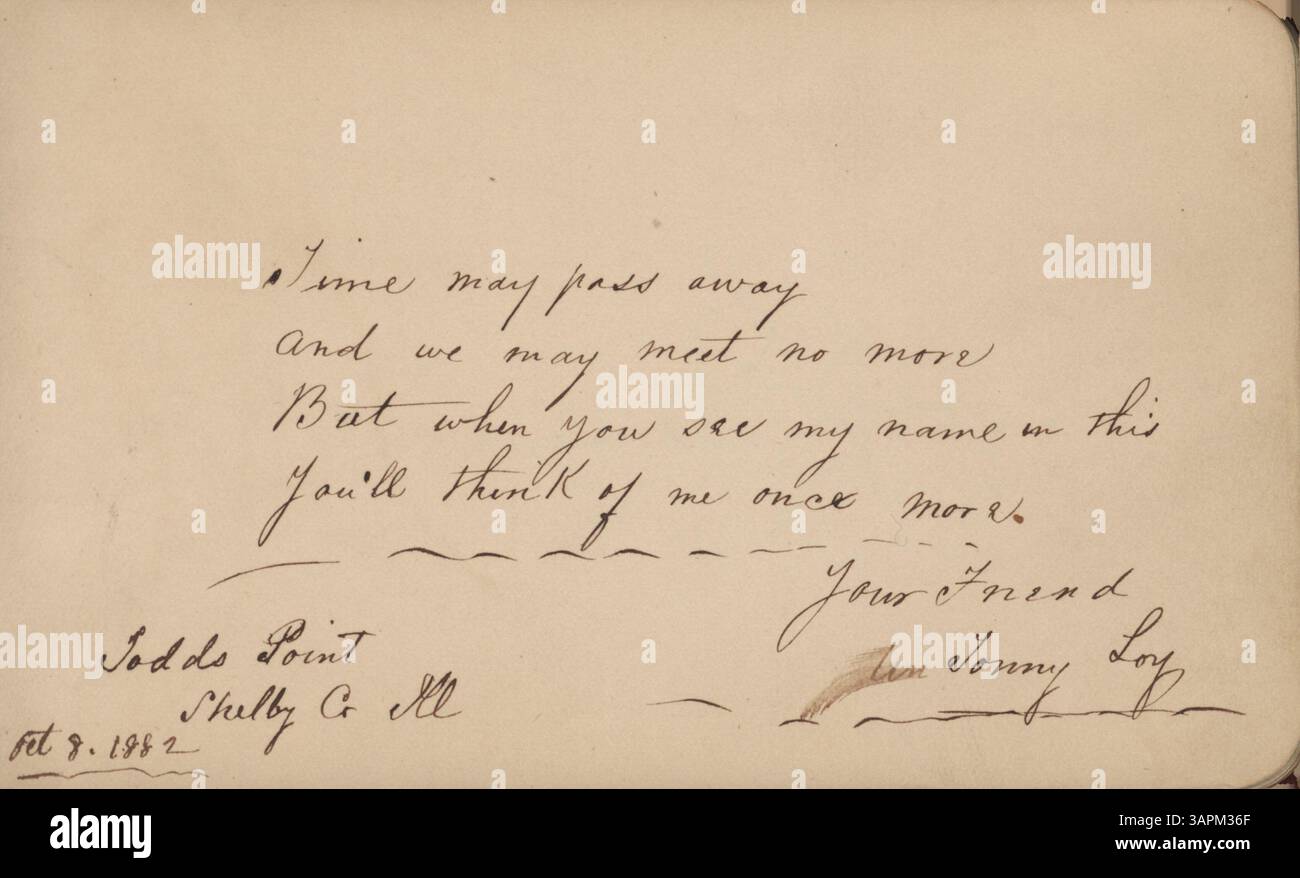 Time may pass away
and we may meet no more
But when you see my name in this
You'll think of me once more.
Your Friend
Tonny Loy
Todds Point
Shelby Co Ill
Oct 8. 1882
alamy
Image ID: 3APM36F
www.alamy.com